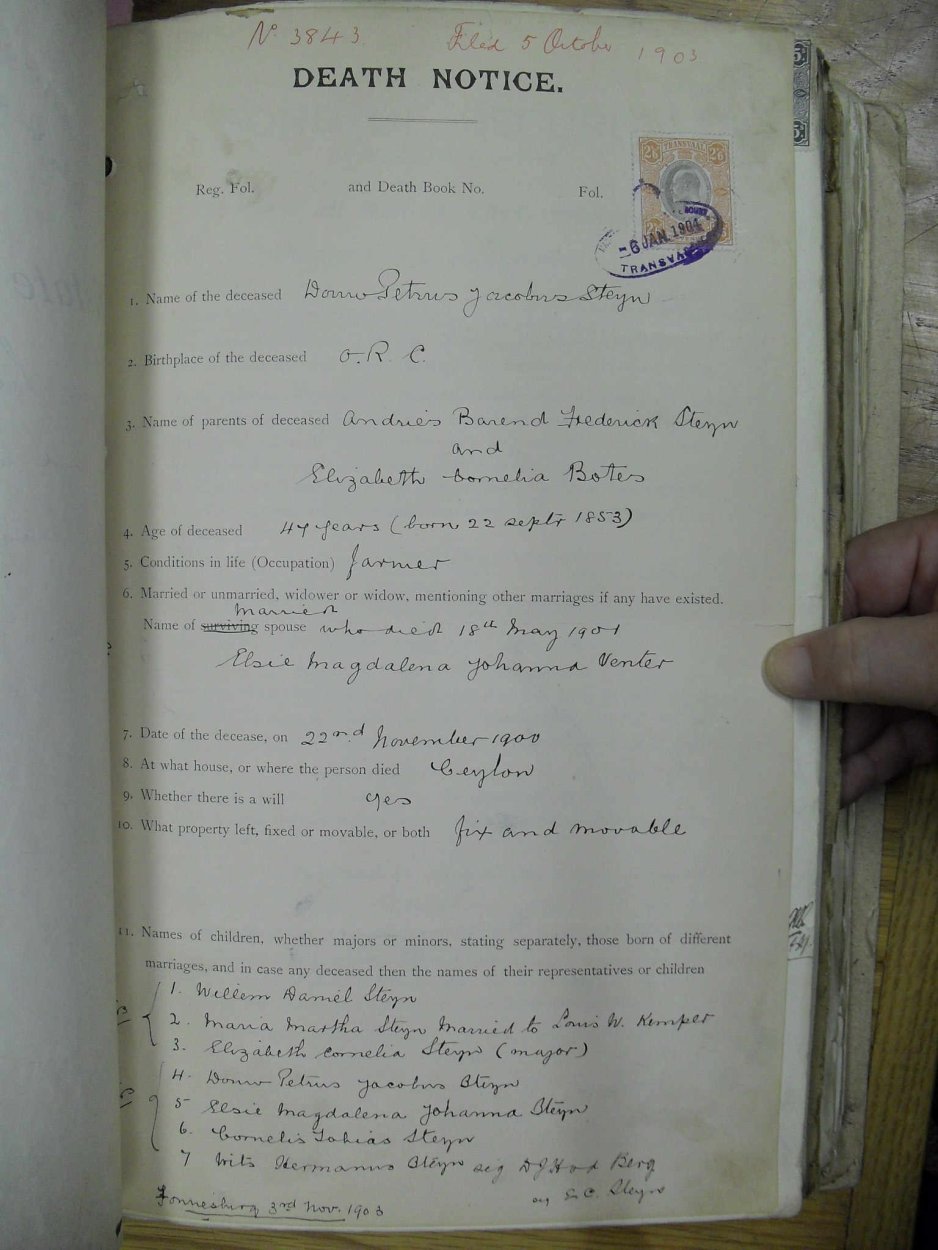 No 3843 Filed 5 October 1903
DEATH NOTICE.
Reg. Fol. and Death Book No. Fol.
TRANSVAAL
2/6 2/6
-6 JAN. 1904
TRANSVAAL
1. Name of the deceased Douw Petrus Jacobus Steyn
2. Birthplace of the deceased O.R.C.
3. Name of parents of deceased Andries Barend Frederick Steyn
and
Elizabeth Cornelia Botes
4. Age of deceased 47 years (born 22 septr 1853)
5. Conditions in life (Occupation) farmer
6. Married or unmarried, widower or widow, mentioning other marriages if any have existed.
married
Name of surviving spouse who died 18th May 1901
Elsie Magdalena Johanna Venter
7. Date of the decease, on 22nd November 1900
8. At what house, or where the person died Ceylon
9. Whether there is a will yes
10. What property left, fixed or movable, or both fix and movable
11. Names of children, whether majors or minors, stating separately, those born of different
marriages, and in case any deceased then the names of their representatives or children
1. Willem Daniel Steyn
2. Maria Martha Steyn Married to Louis W. Kemper
3. Elizabeth Cornelia Steyn (major)
4. Douw Petrus Jacobus Steyn
5 Elsie Magdalena Johanna Steyn
6. Cornelis Tobias Steyn
7 Frits Hermanus Steyn sig D J H v d Berg
sig E. C. Steyn
3rd Nov. 1903